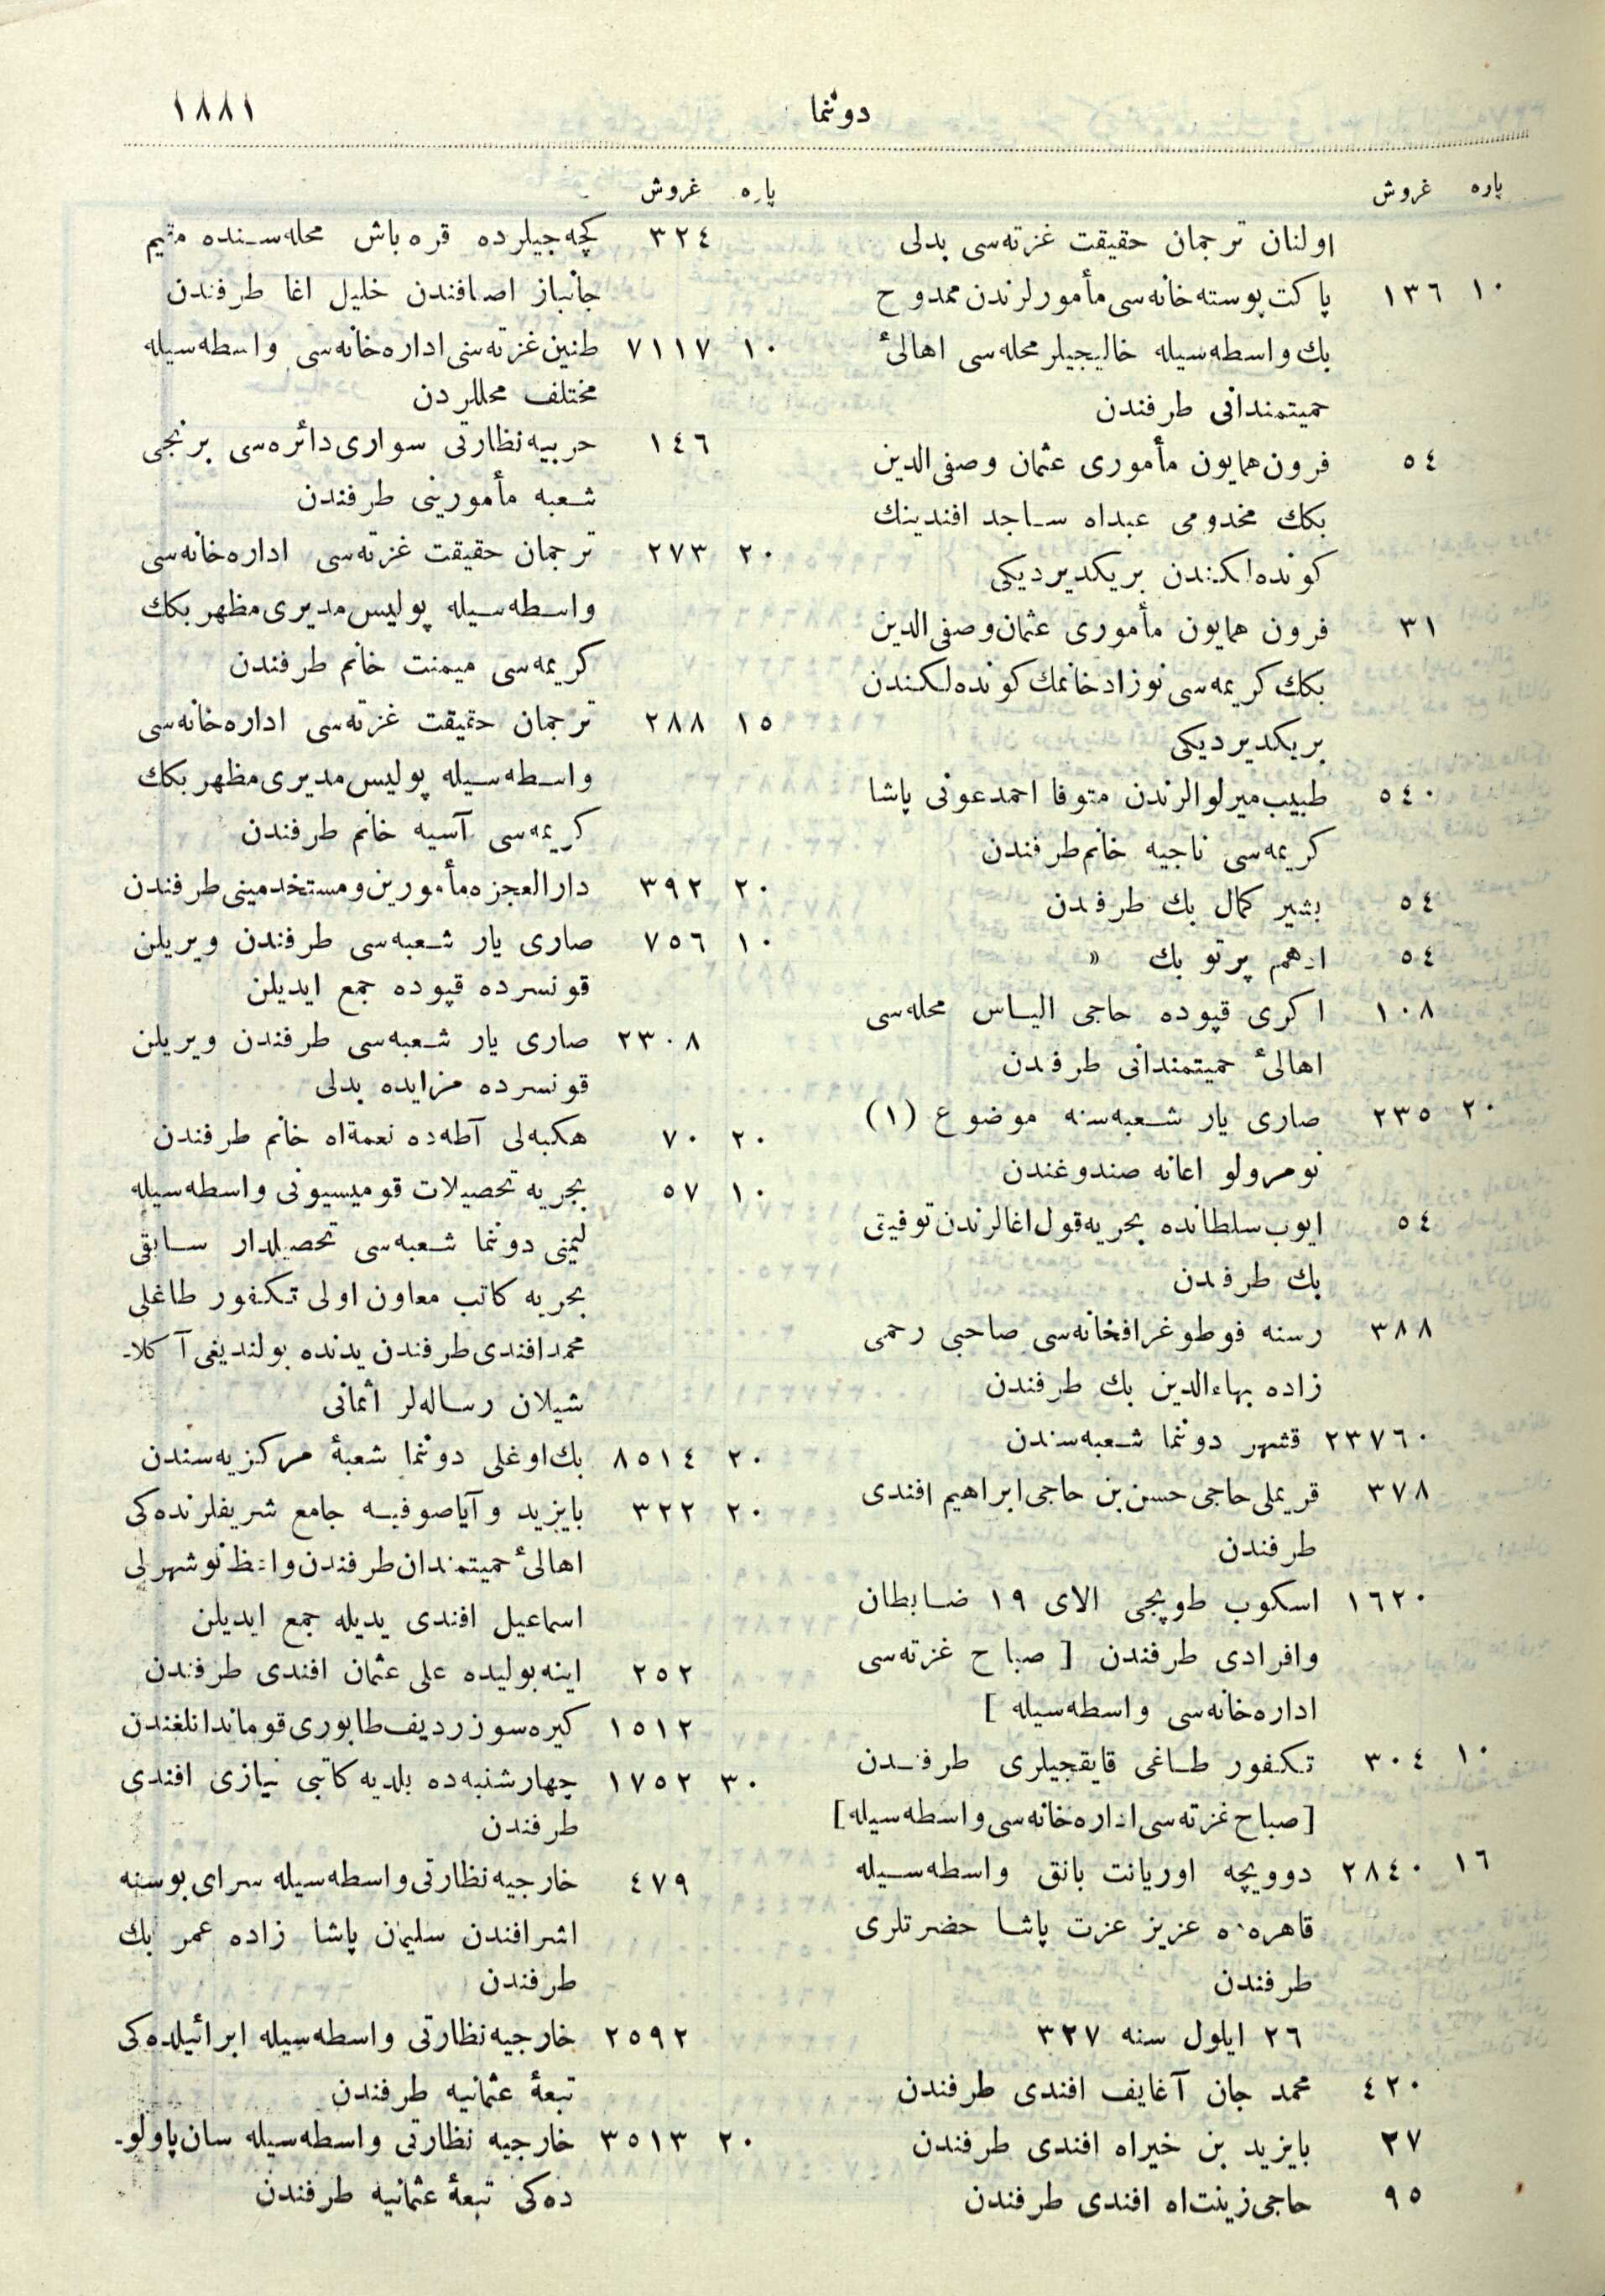 ١٨٨١
دونما
پاره غروش
اولنان ترجمان حقیقت غزته‌سی بدلی
١٠ ١٣٦ پاکت پوسته‌خانه‌سی مأمورلرندن ممدوح
بك واسطه‌سیله خالیجیلر محله‌سی اهالئ
حمیتمندانی طرفندن
٥٤ فرون همایون مأموری عثمان وصفی‌الدین
بکك مخدومی عبداﷲ ساجد افندینك
کونده‌لکندن بریکدیردیکی
٣١ فرون همایون مأموری عثمان وصفی‌الدین
بکك کریمه‌سی نوزاد خانمك کونده‌لکندن
بریکدیردیکی
٥٤٠ طبیب میرلوالرندن متوفا احمد عونی پاشا
کریمه‌سی ناجیه خانم طرفندن
٥٤ بشیر کمال بك طرفدن
٥٤ ادهم پرتو بك »
١٠٨ اکری قپوده حاجی الیاس محله‌سی
اهالئ حمیتمندانی طرفدن
٢٠ ٢٣٥ صاری یار شعبه‌سنه موضوع (١)
نومرولو اعانه صندوغندن
٥٤ ایوب سلطانده بحریه قول اغالرندن توفیق
بك طرفدن
٣٨٨ رسنه فوطوغرافخانه‌سی صاحبی رحمی
زاده بهاءالدین بك طرفندن
٢٣٧٦٠ قشهر دونما شعبه‌سندن
٣٧٨ قریملی حاجی حسن بن حاجی ابراهیم افندی
طرفندن
١٦٢٠ اسکوب طوپجی الای ١٩ ضابطان
وافرادی طرفندن [ صباح غزته‌سی
اداره‌خانه‌سی واسطه‌سیله ]
١٠ ٣٠٤ تکفور طاغی قایقجیلری طرفندن
[صباح غزته‌سی اداره‌خانه‌سی واسطه‌سیله]
١٦ ٢٨٤٠ دوویچه اوریانت بانق واسطه‌سیله
قاهره‌ده عزیز عزت پاشا حضرتلری
طرفندن
٢٦ ایلول سنه ٣٢٧
٤٢٠ محمد جان آغایف افندی طرفندن
٢٧ بایزید بن خیراﷲ افندی طرفندن
٩٥ حاجی زینت‌اﷲ افندی طرفندن
پاره غروش
٣٢٤ کچه‌جیلرده قره‌باش محله‌سنده مقیم
جانباز اصنافندن خلیل اغا طرفندن
١٠ ٧١١٧ طنین غزته‌سی اداره‌خانه‌سی واسطه‌سیله
مختلف محللردن
١٤٦ حربیه نظارتی سواری دائره‌سی برنجی
شعبه مأمورینی طرفندن
٢٠ ٢٧٣ ترجمان حقیقت غزته‌سی اداره‌خانه‌سی
واسطه‌سیله پولیس مدیری مظهر بکك
کریمه‌سی میمنت خانم طرفندن
١٥ ٢٨٨ ترجمان حقیقت غزته‌سی اداره‌خانه‌سی
واسطه‌سیله پولیس مدیری مظهر بکك
کریمه‌سی آسیه خانم طرفندن
٢٠ ٣٩٢ دارالعجزه مأمورین و مستخدمینی طرفندن
١٠ ٧٥٦ صاری یار شعبه‌سی طرفندن ویریلن
قونسرده قپوده جمع ایدیلن
٢٣٠٨ صاری یار شعبه‌سی طرفندن ویریلن
قونسرده مزایده بدلی
٢٠ ٧٠ هکبه‌لی آطه‌ده نعمةاﷲ خانم طرفندن
١٠ ٥٧ بحریه تحصیلات قومیسیونی واسطه‌سیله
لیمنی دونما شعبه‌سی تحصیلدار سابقی
بحریه کاتب معاون اولی تکفور طاغلی
محمد افندی طرفندن یدنده بولندیغی آکلا-
شیلان رساله‌لر اثمانی
٢٠ ٨٥١٤ بك‌اوغلی دونما شعبهٔ مرکزیه‌سندن
٢٠ ٣٢٢ بایزید و آیاصوفیه جامع شریفلرنده‌کی
اهالئ حمیتمندان طرفندن واعظ نوشهرلی
اسماعیل افندی یدیله جمع ایدیلن
٢٥٢ اینه‌بولیده علی عثمان افندی طرفندن
١٥١٢ کیره‌سون ردیف طابوری قوماندانلغندن
٣٠ ١٧٥٢ چهارشنبه‌ده بلدیه کاتبی نیازی افندی
طرفندن
٤٧٩ خارجیه نظارتی واسطه‌سیله سرای بوسنه
اشرافندن سلیمان پاشا زاده عمر بك
طرفندن
٢٥٩٢ خارجیه نظارتی واسطه‌سیله ابرائیلده‌کی
تبعهٔ عثمانیه طرفندن
٢٠ ٣٥١٣ خارجیه نظارتی واسطه‌سیله سان‌پاولو-
ده‌کی تبعهٔ عثمانیه طرفندن